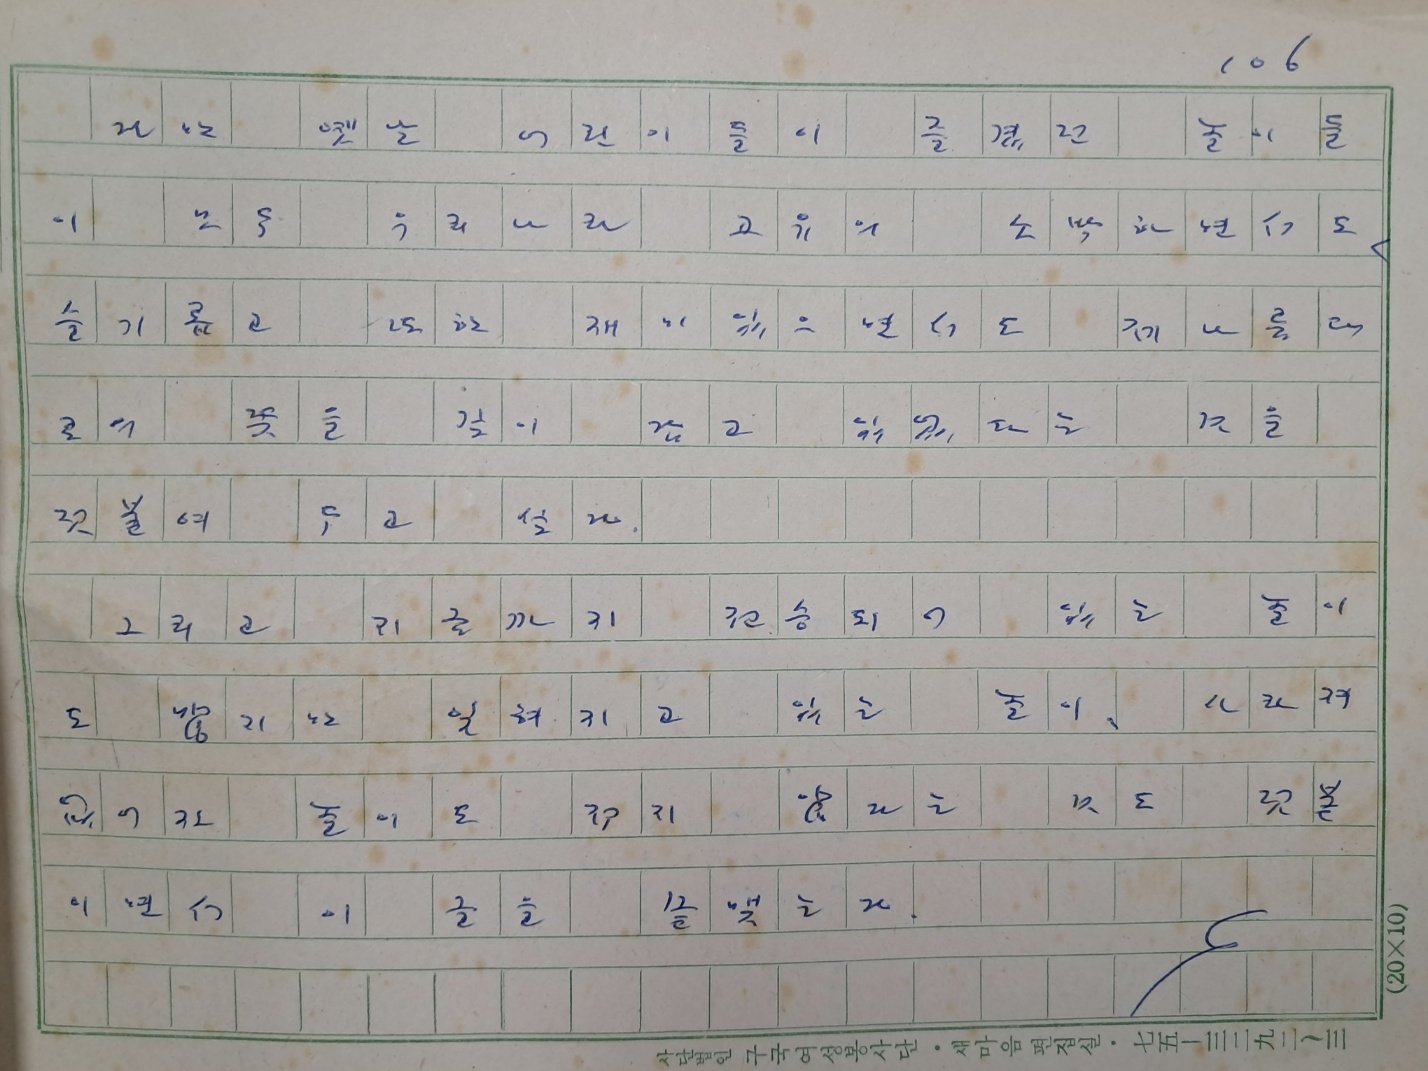 106
하지만 옛날 어린이들이 즐겼던 놀이들
이 모두 우리나라 고유의 소박하면서도
슬기롭고 또한 재미있으면서도 제나름대
로의 뜻을 깊이 갖고 있었다는 것을
덧붙여 두고 싶다.
그리고 지금까지 전승되어 있는 놀이
도 많지만 잊혀지고 있는 놀이, 사라져
없어진 놀이도 적지 않다는 것도 덧붙
이면서 이 글을 끝맺는다.
(20×10)
사단법인 구국여성봉사단·새마음편집실·七五一三三九二~三